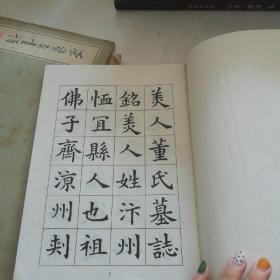 美人董氏墓誌
銘美人姓汴州
恤冝縣人也祖
佛子齊涼州刾